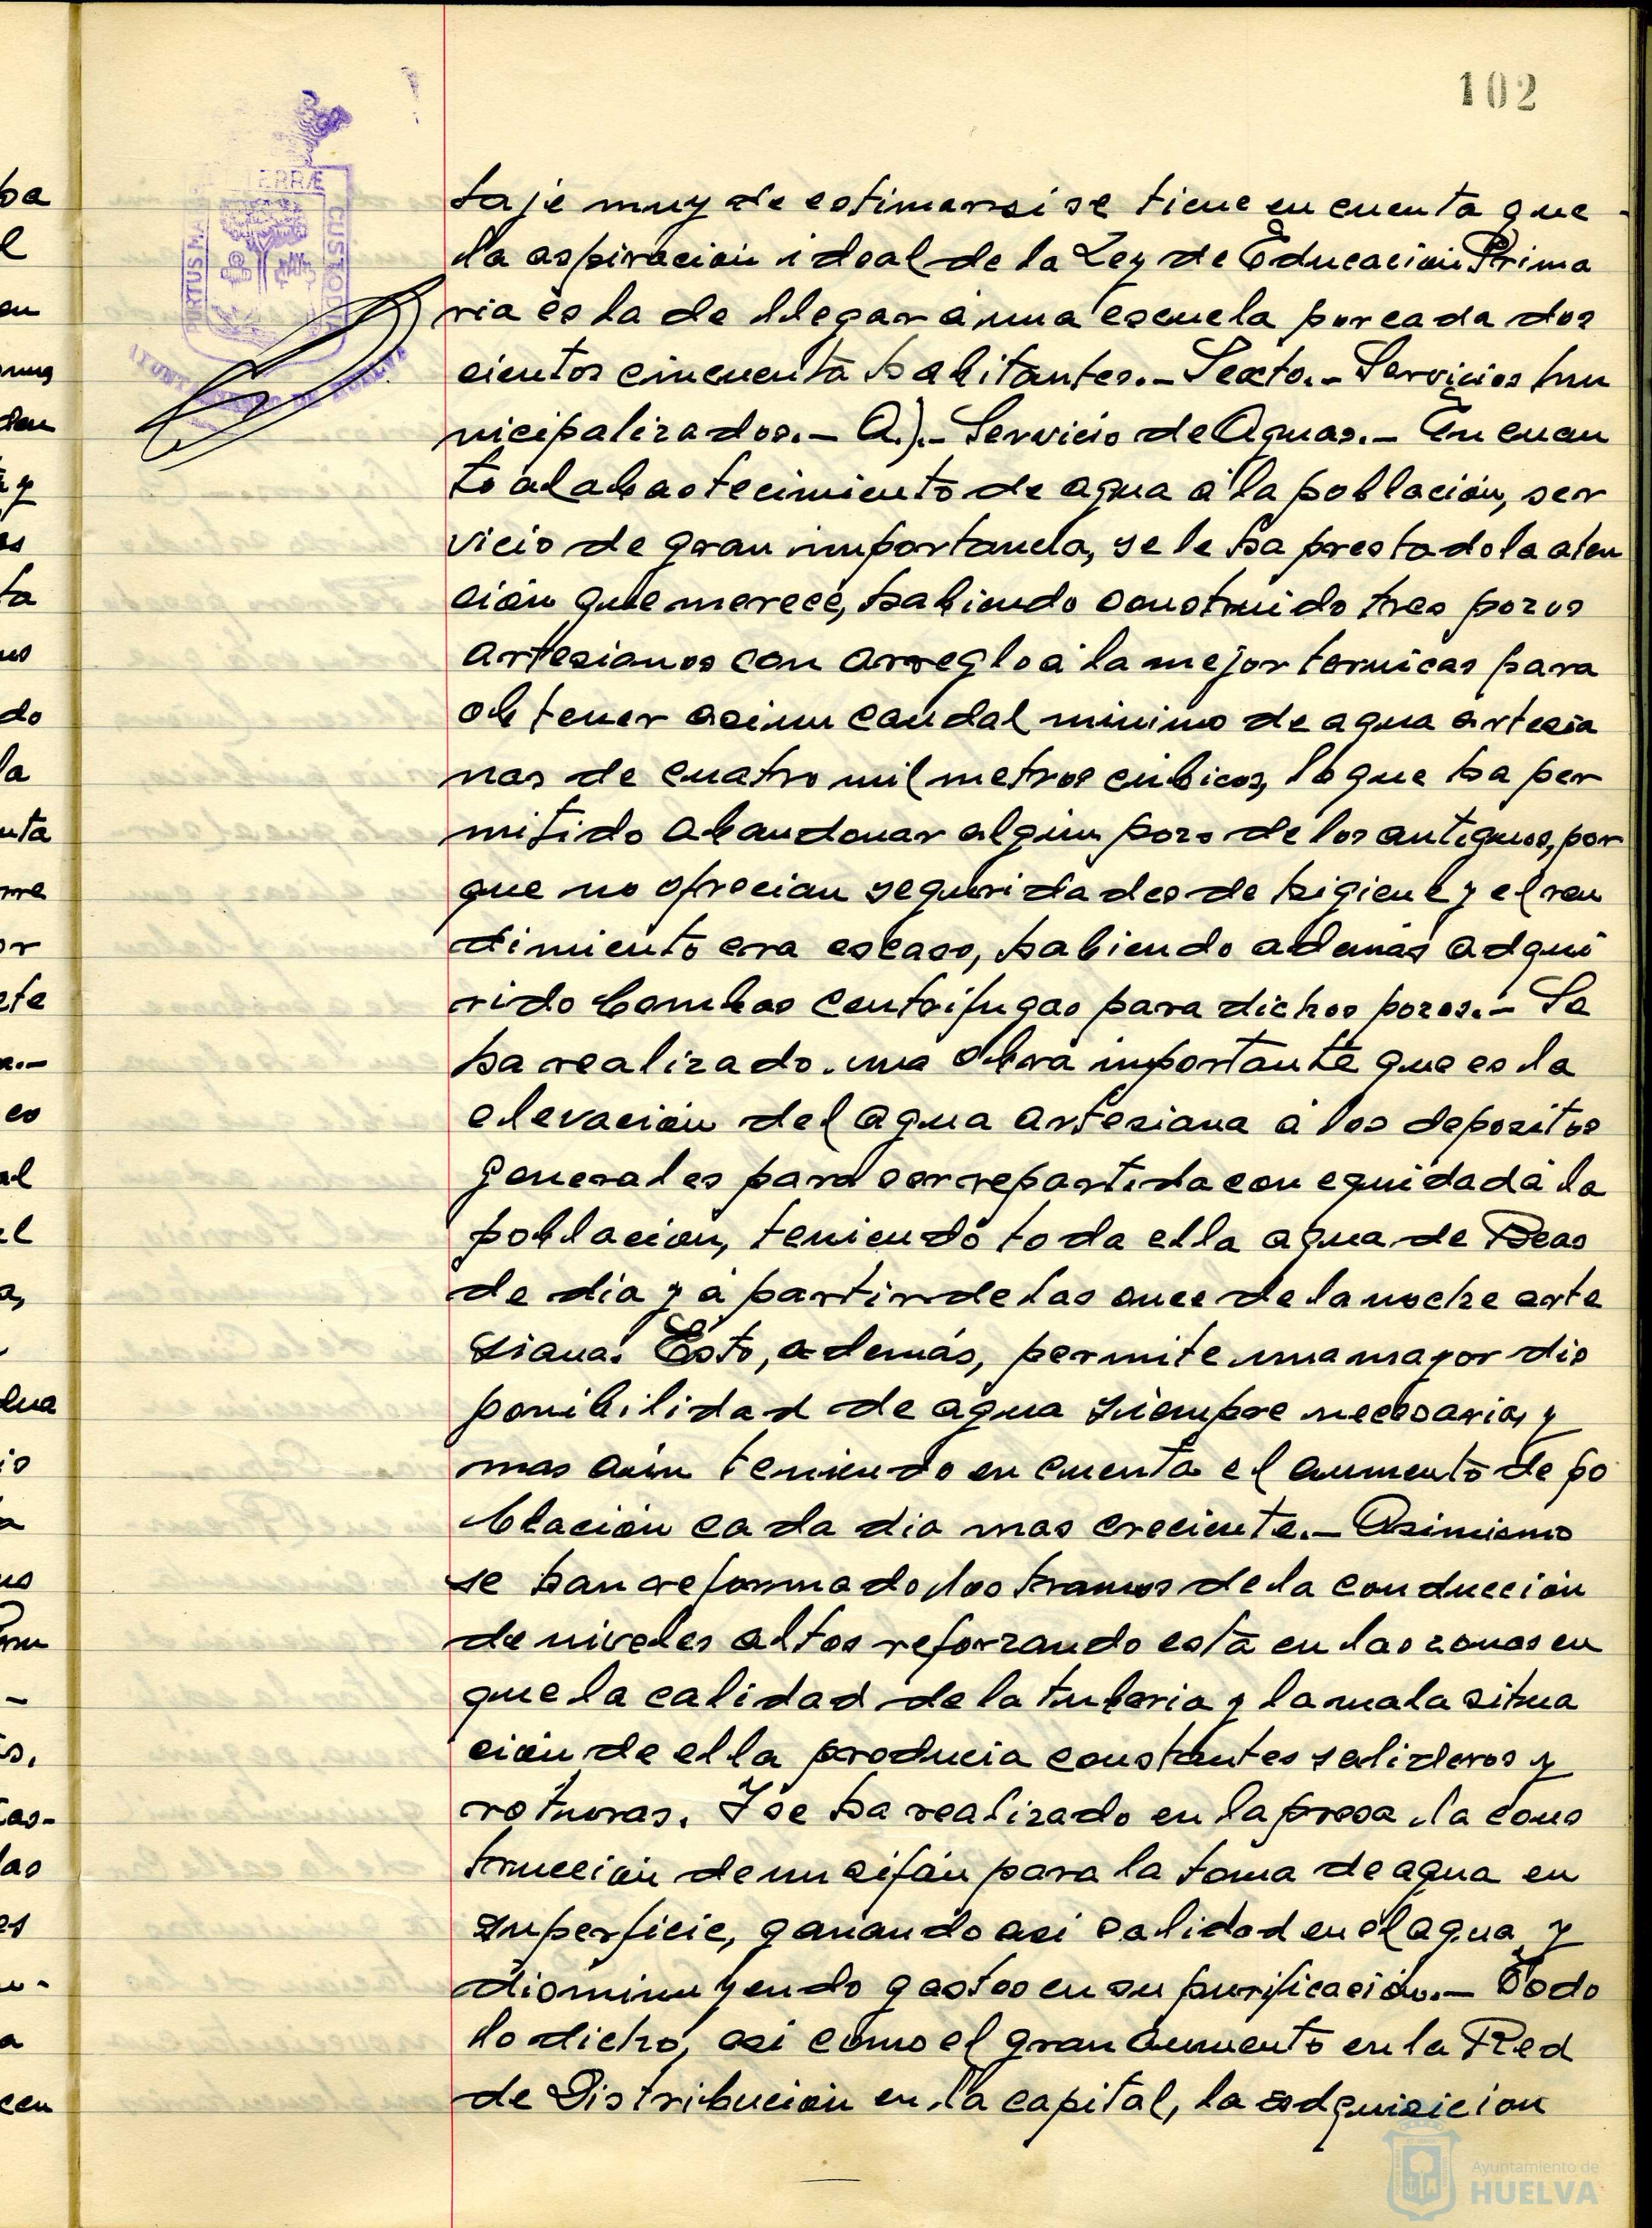 102
TERRÆ
PORTUS MA
CUSTODIA
AYUNTAMIENTO DE HUELVA
taje muy de estimar si se tiene en cuenta que
la aspiración ideal de la Ley de Educación Prima
ria es la de llegar á una escuela por cada dos
cientos cincuenta habitantes.- Sexto.- Servicios mu
nicipalizados.- A).- Servicio de Aguas.- En cuan
to al abastecimiento de agua á la población, ser
vicio de gran importancia, se le ha prestado la aten
ción que merece, habiendo construido tres pozos
artesianos con arreglo á la mejor tecnicas para
obtener asi un caudal minimo de agua artesia
nas de cuatro mil metros cúbicos, lo que ha per
mitido abandonar algún pozo de los antiguos, por
que no ofrecian seguridades de higiene y el ren
dimiento era escaso, habiendo además adqui
rido bombas centrifugas para dichos pozos.- Se
ha realizado una obra importante que es la
elevación del agua artesiana á los depositos
generales para ser repartida con equidad á la
poblacion, teniendo toda ella agua de Beas
de dia y á partir de las once de la noche arte
siana. Esto, además, permite una mayor dis
ponibilidad de agua siempre necesaria, y
mas aún teniendo en cuenta el aumento de po
blación cada dia mas creciente.- Asimismo
se han reformado los tramos de la conducción
de niveles altos reforzando esta en las zonas en
que la calidad de la tuberia y la mala situa
ción de ella producia constantes salideros y
roturas. Y se ha realizado en la presa la cons
trucción de un sifón para la toma de agua en
superficie, ganando asi calidad en el agua y
disminuyendo gastos en su purificación.- Todo
lo dicho, asi como el gran aumento en la Red
de Distribución en la capital, la adquisicion
Ayuntamiento de
HUELVA